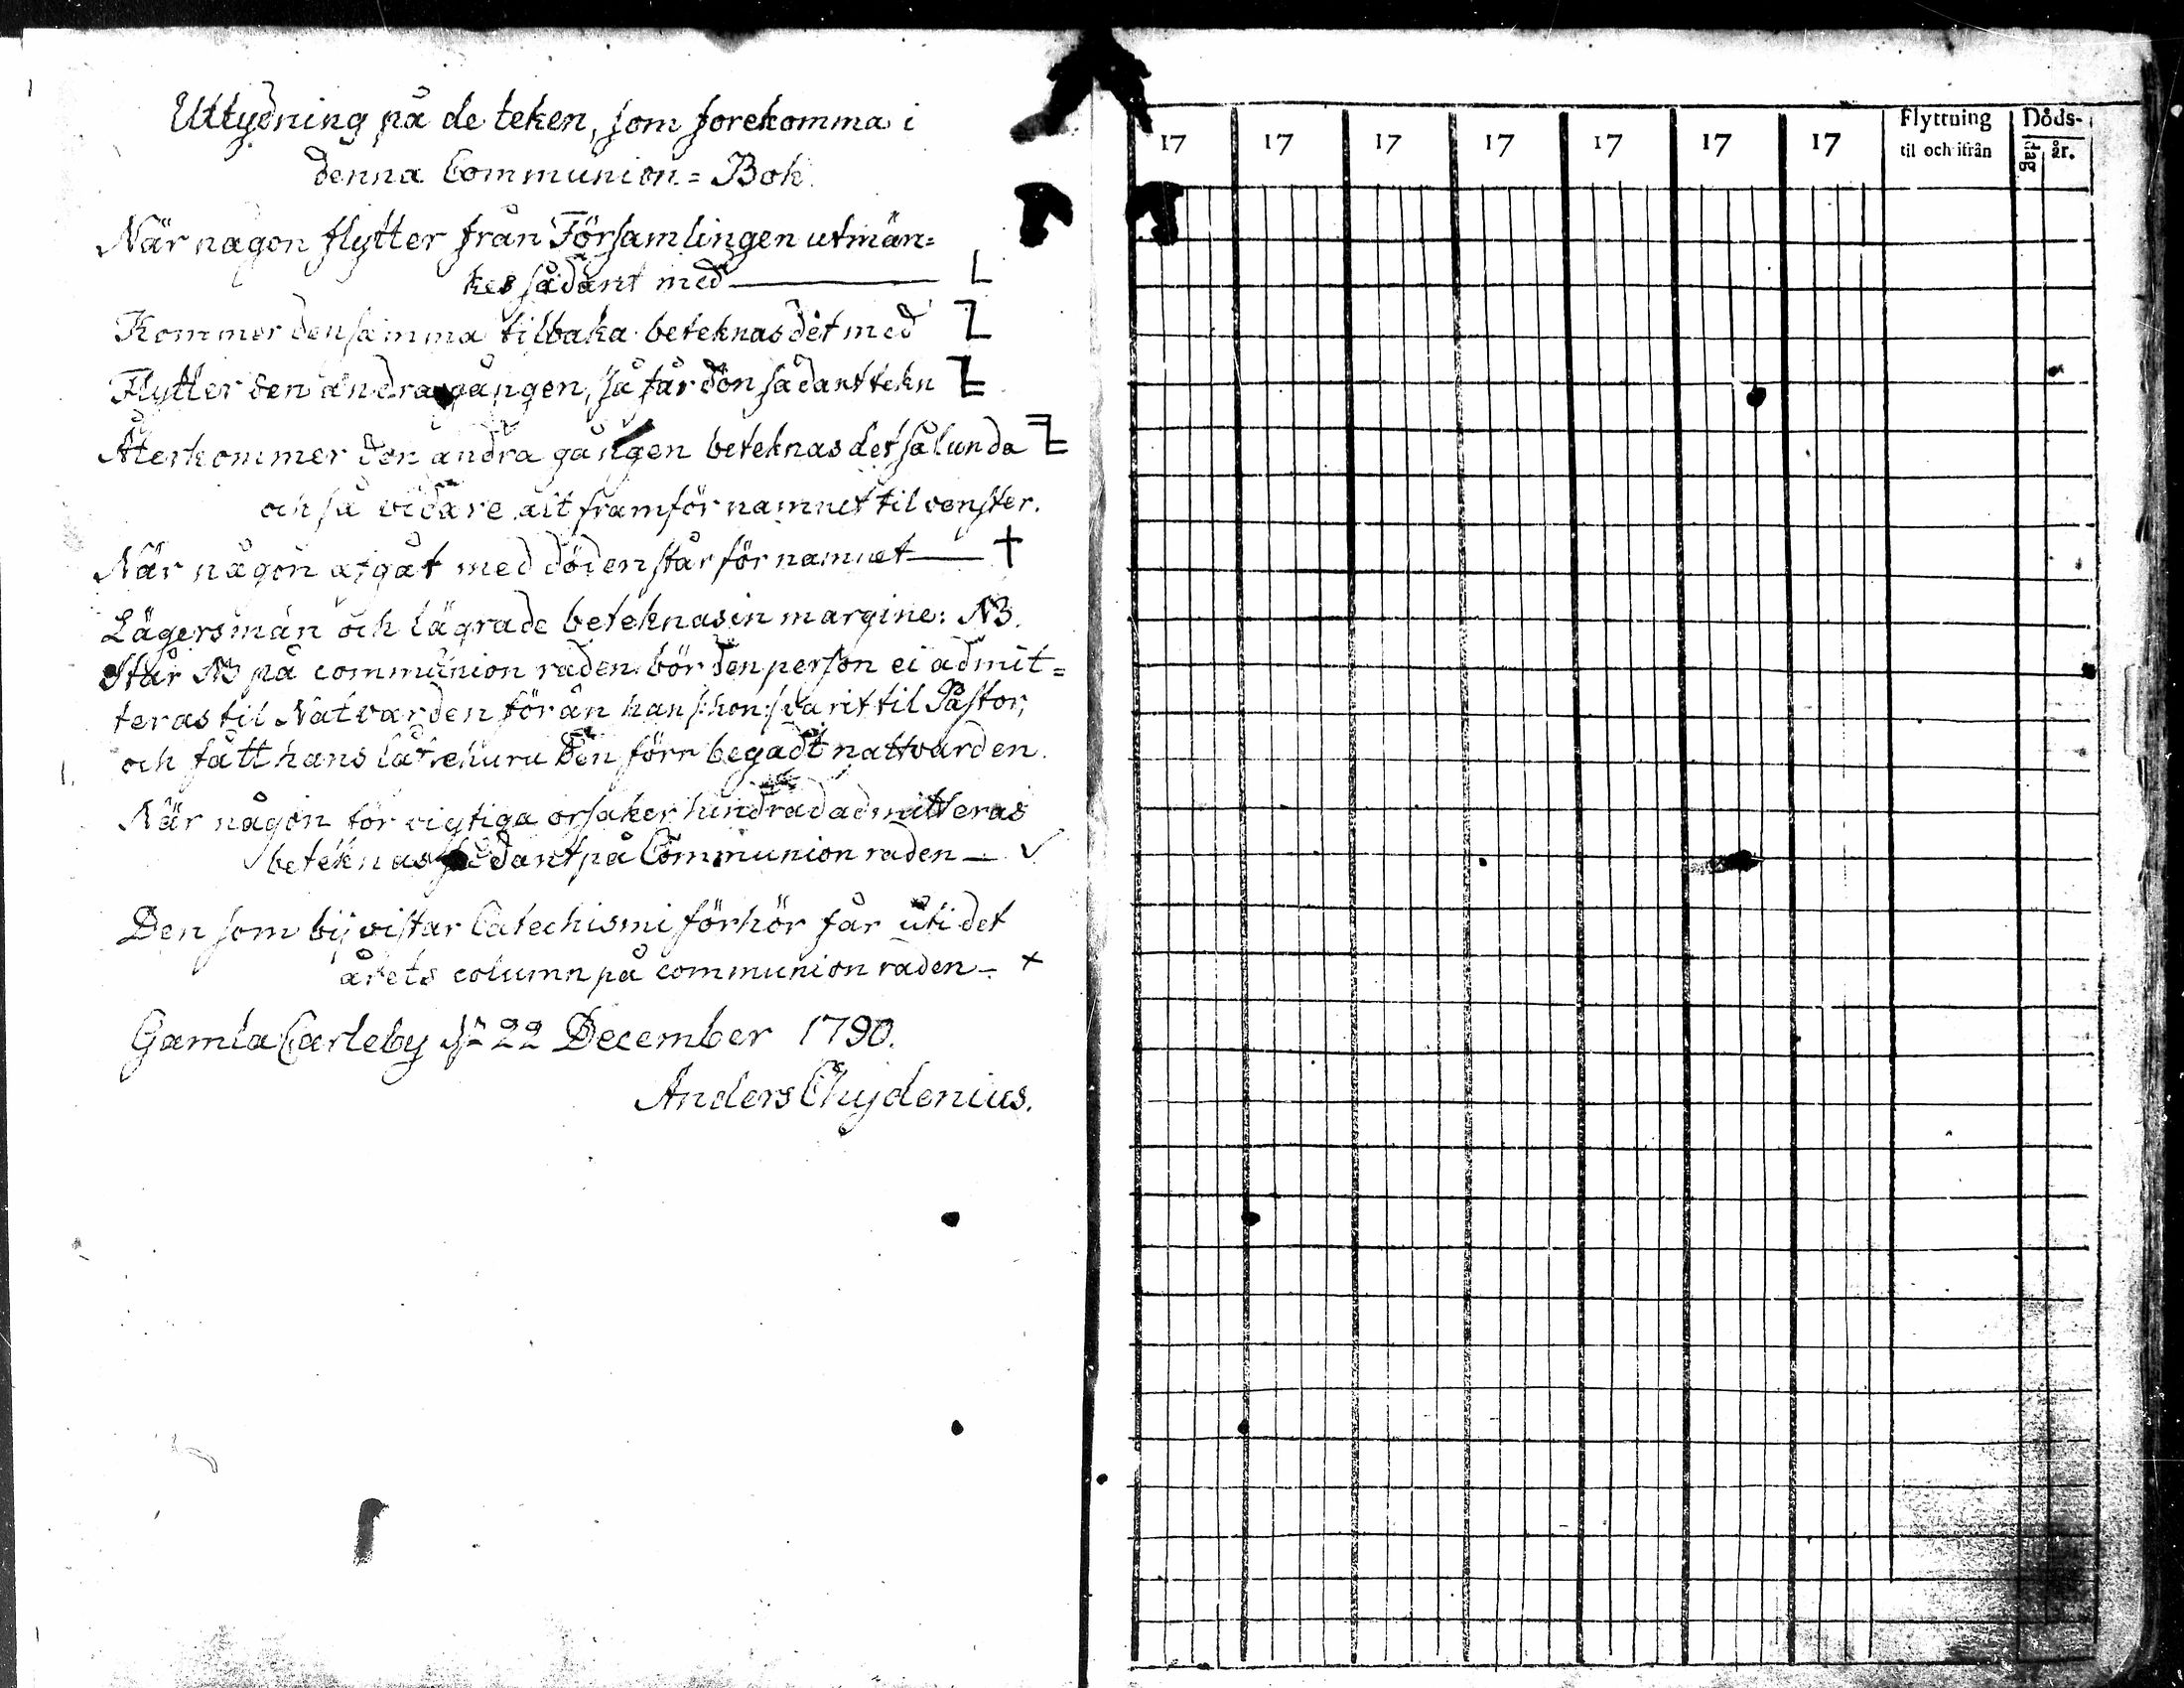 Uttydning på de teken, som forekomma i
denna Communion = Bok.
När nagon flytter från Församlingen utmän=
kes sådant med — L
Kommer densamma tilbaka beteknas det med
Flytter den andra gången, så får den sådant tekn
Återkommer den andra gången beteknas det sålunda
och så vidare alt framför namnet til venster.
När någon afgåt med döden står för namnet — †
Lägersmän och lägrade beteknas in margine: NB.
Står NB på communion raden bör den person ei admit=
teras til Natvarden förän han /:hon:/ varit til Pastor,
och fått hans låf, ehuru den förr begådt nattvarden.
När någon för vigtiga orsaker hindrad admitteras
beteknas sådant på Communion raden — ✓
Den som bijvistar Catechismi förhör får uti det
årets column på communion raden — ×
Gamla Carleby dn 22 December 1790.
Anders Chydenius.
17 17 17 17 17 17 17 Flyttning til och ifrån Döds- dag år.